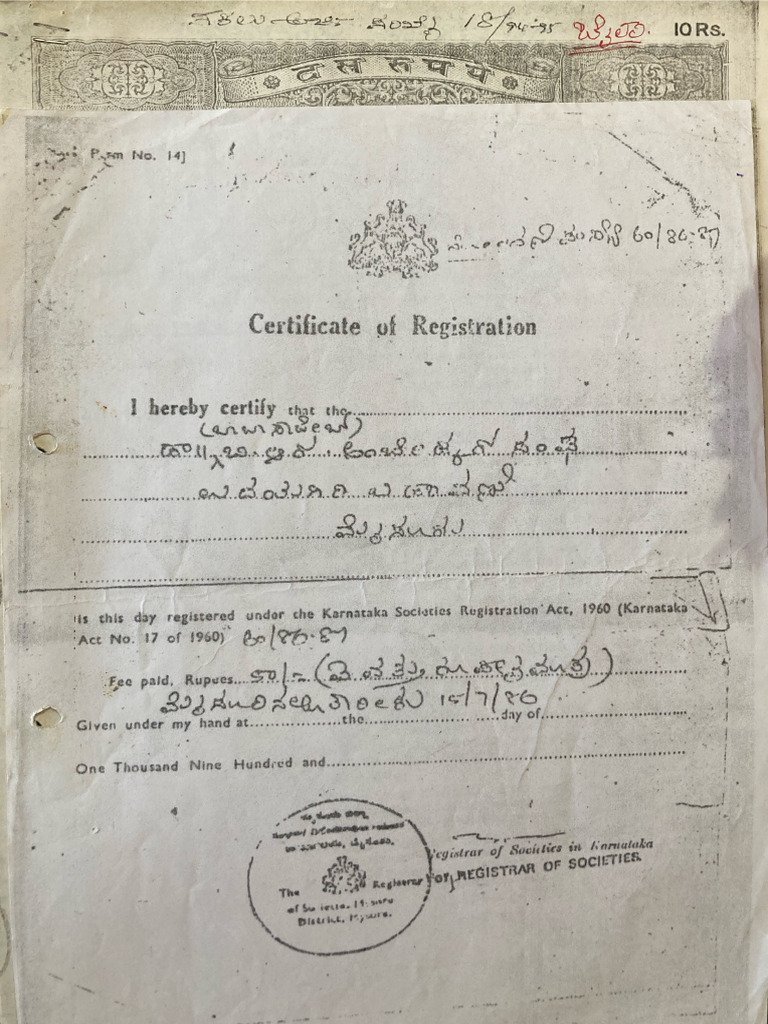 ನಕಲು ಅರ್ಜಿ ಸಂಖ್ಯೆ 18/94-95
10 Rs.
ದಸ ರುಪಯೆ
Form No. 14]
ನೋಂದಣಿ ಸಂಖ್ಯೆ 60/86-87
Certificate of Registration
I hereby certify that the
(ಬಾಬಾ ಸಾಹೇಬ)
ಡಾ|| ಬಿ. ಆರ್. ಅಂಬೇಡ್ಕರ್ ಸಂಘ
ಉದಯಗಿರಿ ಬಡಾವಣೆ
ಮೈಸೂರು
is this day registered under the Karnataka Societies Registration Act, 1960 (Karnataka
Act No. 17 of 1960) 60/86-87
Fee paid, Rupees 50/- (ಐವತ್ತು ರೂಪಾಯಿ ಮಾತ್ರ)
ಮೈಸೂರಿನಲ್ಲಿ ತಾರೀಖು 15/7/86
Given under my hand at the day of
One Thousand Nine Hundred and
The Registrar
of Societies, Mysore
District, Mysore.
Registrar of Societies in Karnataka
For REGISTRAR OF SOCIETIES.